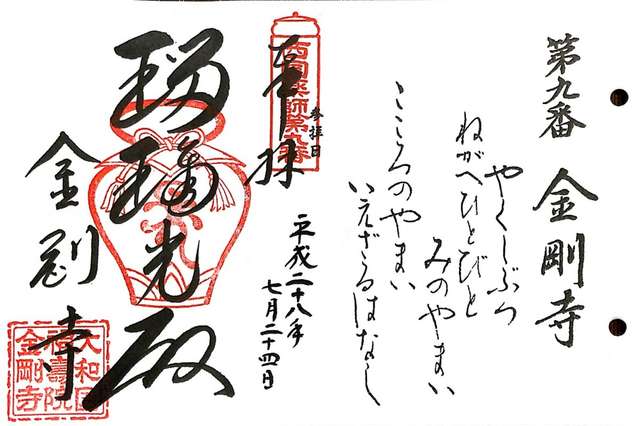 第九番 金剛寺
やくしぶつ
ねがへひとびと
みのやまい
こころのやまい
いえざるはなし
奉拝
西国薬師第九番
参拝日
平成二十八年
七月二十四日
瑠璃光殿
金剛寺
大和国
福壽院
金剛寺